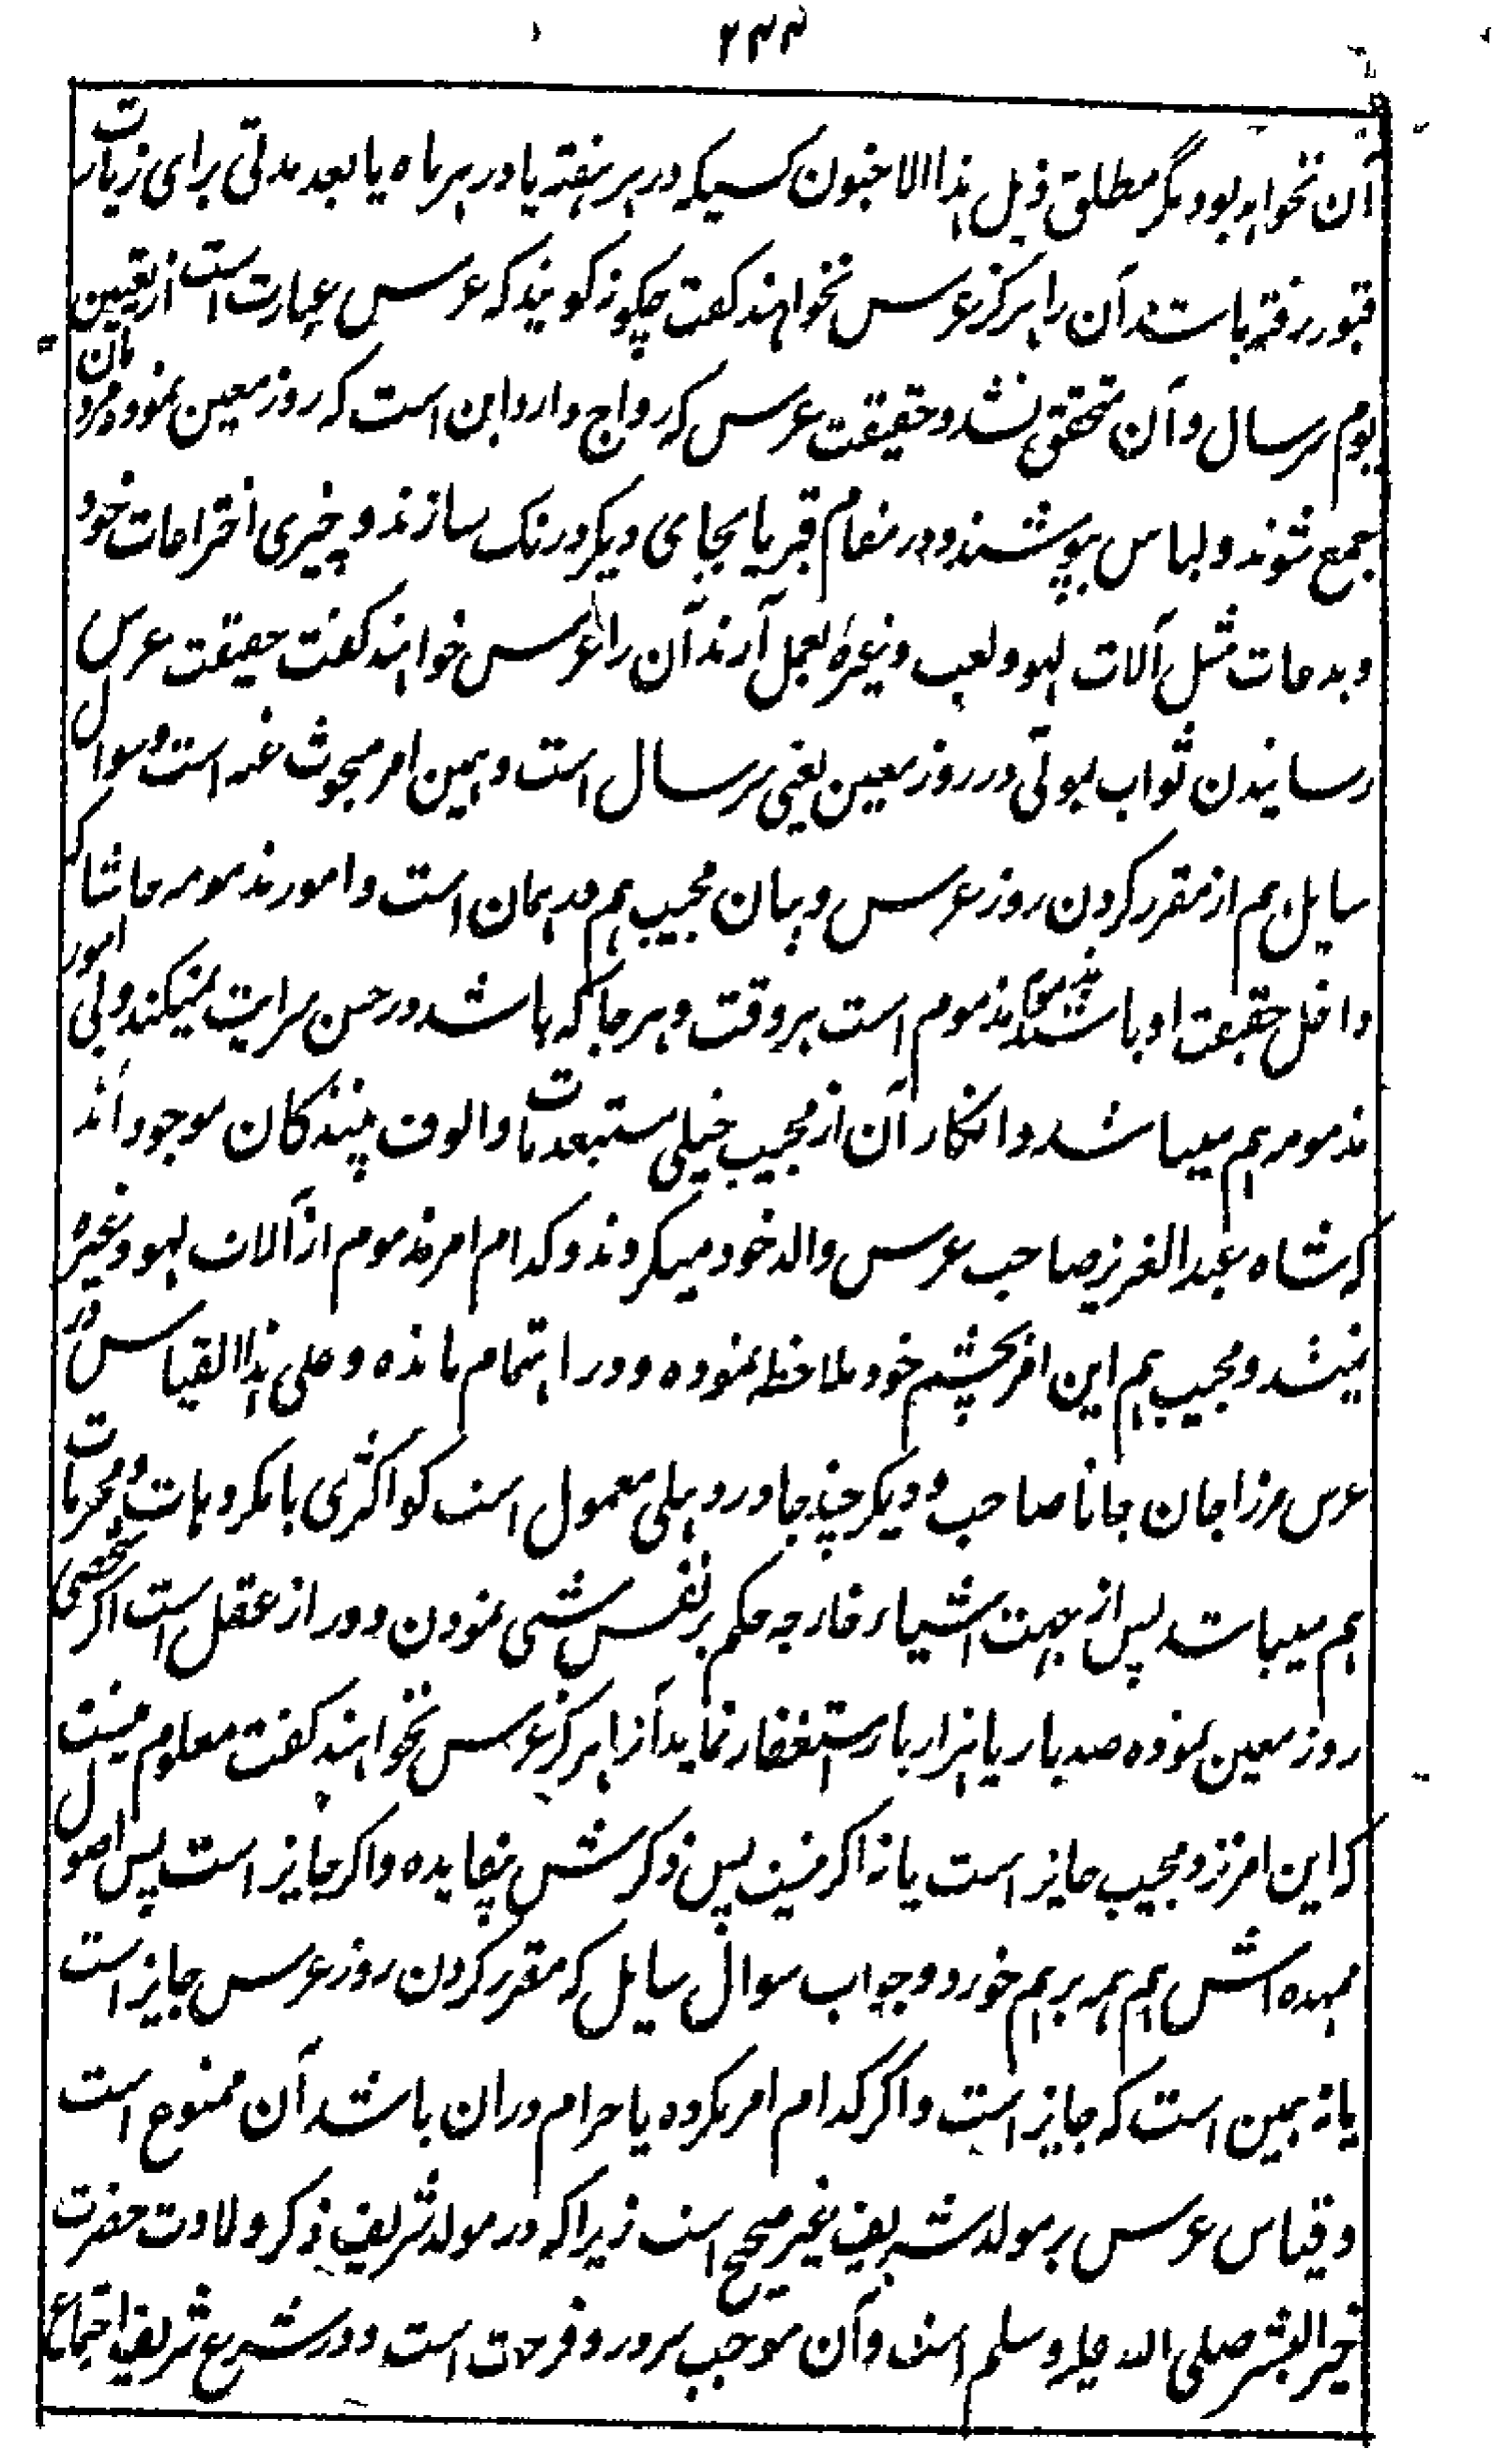 ۲۴۴
آن نخواهد بود مگر مطلق فهل هذا الا جنون کسیکه در هر هفته یا در هر ماه یا بعد مدتی برای زیارت
قبور رفته باشند آن را هرگز عرس نخواهند گفت چگونه گویند که عرس عبارت است از تعین
یوم سر سال و آن متحقق نشد و حقیقت عرس که رواج دارد این است که روز معین نموده مردمان
جمع شوند و لباس بپوشند و در مقام قبر یا بجای دیگر درنگ سازند و چیزی اختراعات خود
و بدعات مثل آلات لهو و لعب و غیره بعمل آرند آن را عرس خواهند گفت حقیقت عرس
رسانیدن ثواب بموتی در روز معین یعنی سر سال است و همین امر مبحوث عنه است و سوال
سایل هم از مقرر کردن روز عرس و بیان مجیب هم در همان است و امور مذمومه حاشا که
داخل حقیقت او باشند مذموم مذموم است هر وقت و هر جا که باشد در حسن سرایت نمیکند و لی امور
مذمومه هم میباشد و انکار آن از مجیب خیلی مستبعد مات و الوف بینندگان موجود اند
که شاه عبد العزیز صاحب عرس والد خود میکردند و کدام امر مذموم از آلات لهو و غیره
نمیشد و مجیب هم این امر بچشم خود ملاحظه نموده و در اهتمام مانده و علی هذا القیاس در
عرس مرزا جان جانا صاحب و دیگر چند جا در دهلی معمول است گو اکثری با مکروهات و محرمات
هم میباشد پس از جهت اشیاء خارجه حکم بر نفس شی نمودن دور از عقل است اگر شخصی
روز معین نموده صد بار یا هزار بار استغفار نماید آنرا هرگز عرس نخواهند گفت معلوم نیست
که این امر نزد مجیب جایز است یا نه اگر نیست پس ذکرش بیفایده و اگر جایز است پس اصول
مهده‌اش هم همه برهم خورد و جواب سوال سایل که مقرر کردن روز عرس جایز است
یا نه همین است که جایز است و اگر کدام امر مکروه یا حرام دران باشد آن ممنوع است
و قیاس عرس بر مولد شریف غیر صحیح است زیرا که در مولد شریف ذکر ولادت حضرت
خیر البشر صلی الله علیه و سلم است و آن موجب سرور و فرحت است و در شرع شریف اجتماع